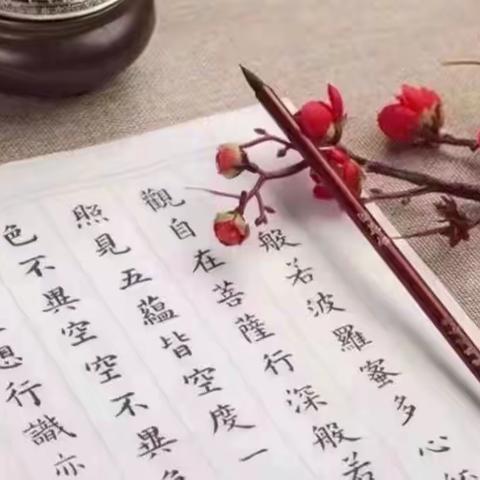 般若波羅蜜多心
觀自在菩薩行深般若
照見五蘊皆空度一
色不異空空不異色
想行識亦